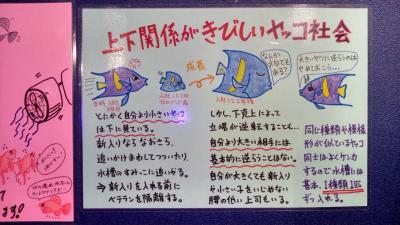 上下関係がきびしいヤッコ社会
成長
なんか文句でもある?
大きいヤツに逆らうのはやめておこう…
とにかく自分より小さいヤッコ
は下に見ている。
新入りならなおさら、
追いかけまわしてつついたり、
水槽のすみっこに追いやる。
→新入りを入れる前に
ベテランを隔離する。
しかし、下克上によって
立場が逆転することも…
自分より大きい相手には
基本的に逆らうことはない。
自分が大きくても新入り
や小さい子をいじめない
腰の低い上司もいる。
同じ種類や模様、
形が似ているヤッコ
同士はよくケンカ
するので水槽には
基本、1種類1匹
ずつ入れる。